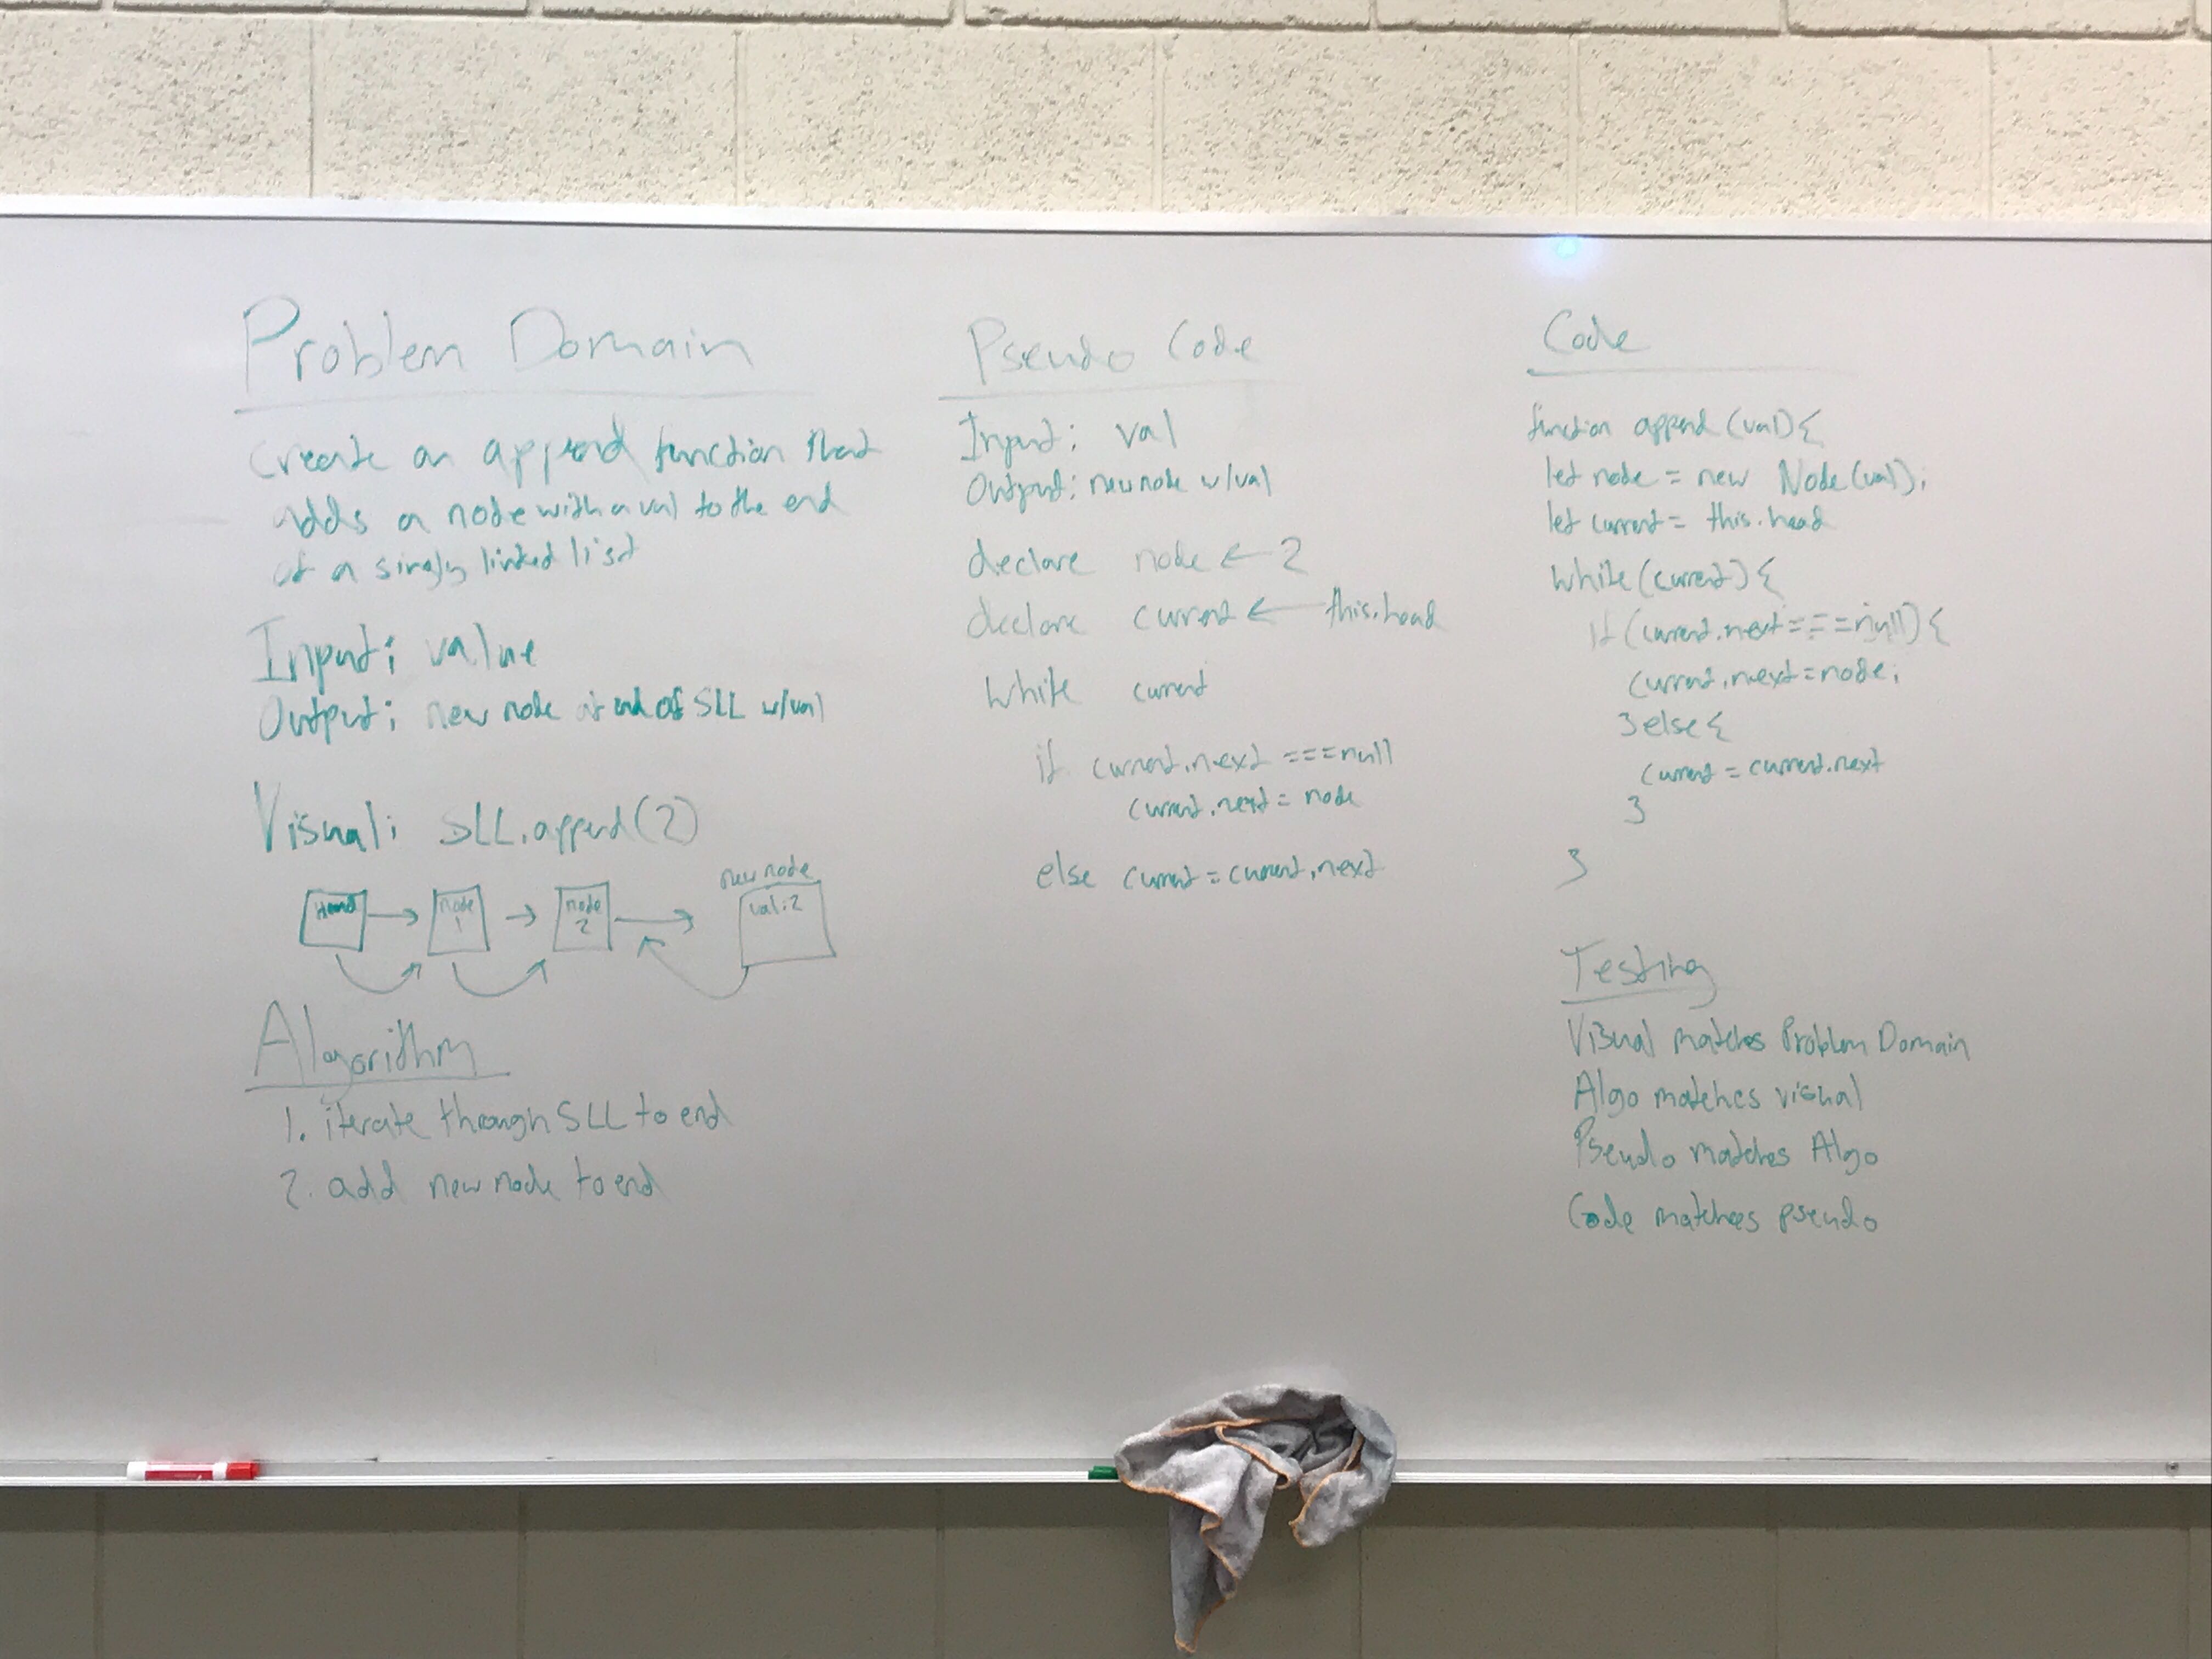 Problem Domain
create an append function that
adds a node with a val to the end
of a singly linked list
Input: value
Output: new node at end of SLL w/val
Visual: SLL.append(2)
new node
Head → node 1 → node 2 → val:2
Algorithm
1. iterate through SLL to end
2. add new node to end
Pseudo Code
Input: val
Output: new node w/val
declare node ← 2
declare current ← this.head
While current
if current.next === null
current.next = node
else current = current.next
Code
function append (val) {
let node = new Node(val);
let current = this.head
while (current) {
if (current.next === null) {
current.next = node;
} else {
current = current.next
}
}
Testing
Visual matches Problem Domain
Algo matches visual
Pseudo matches Algo
Code matches pseudo